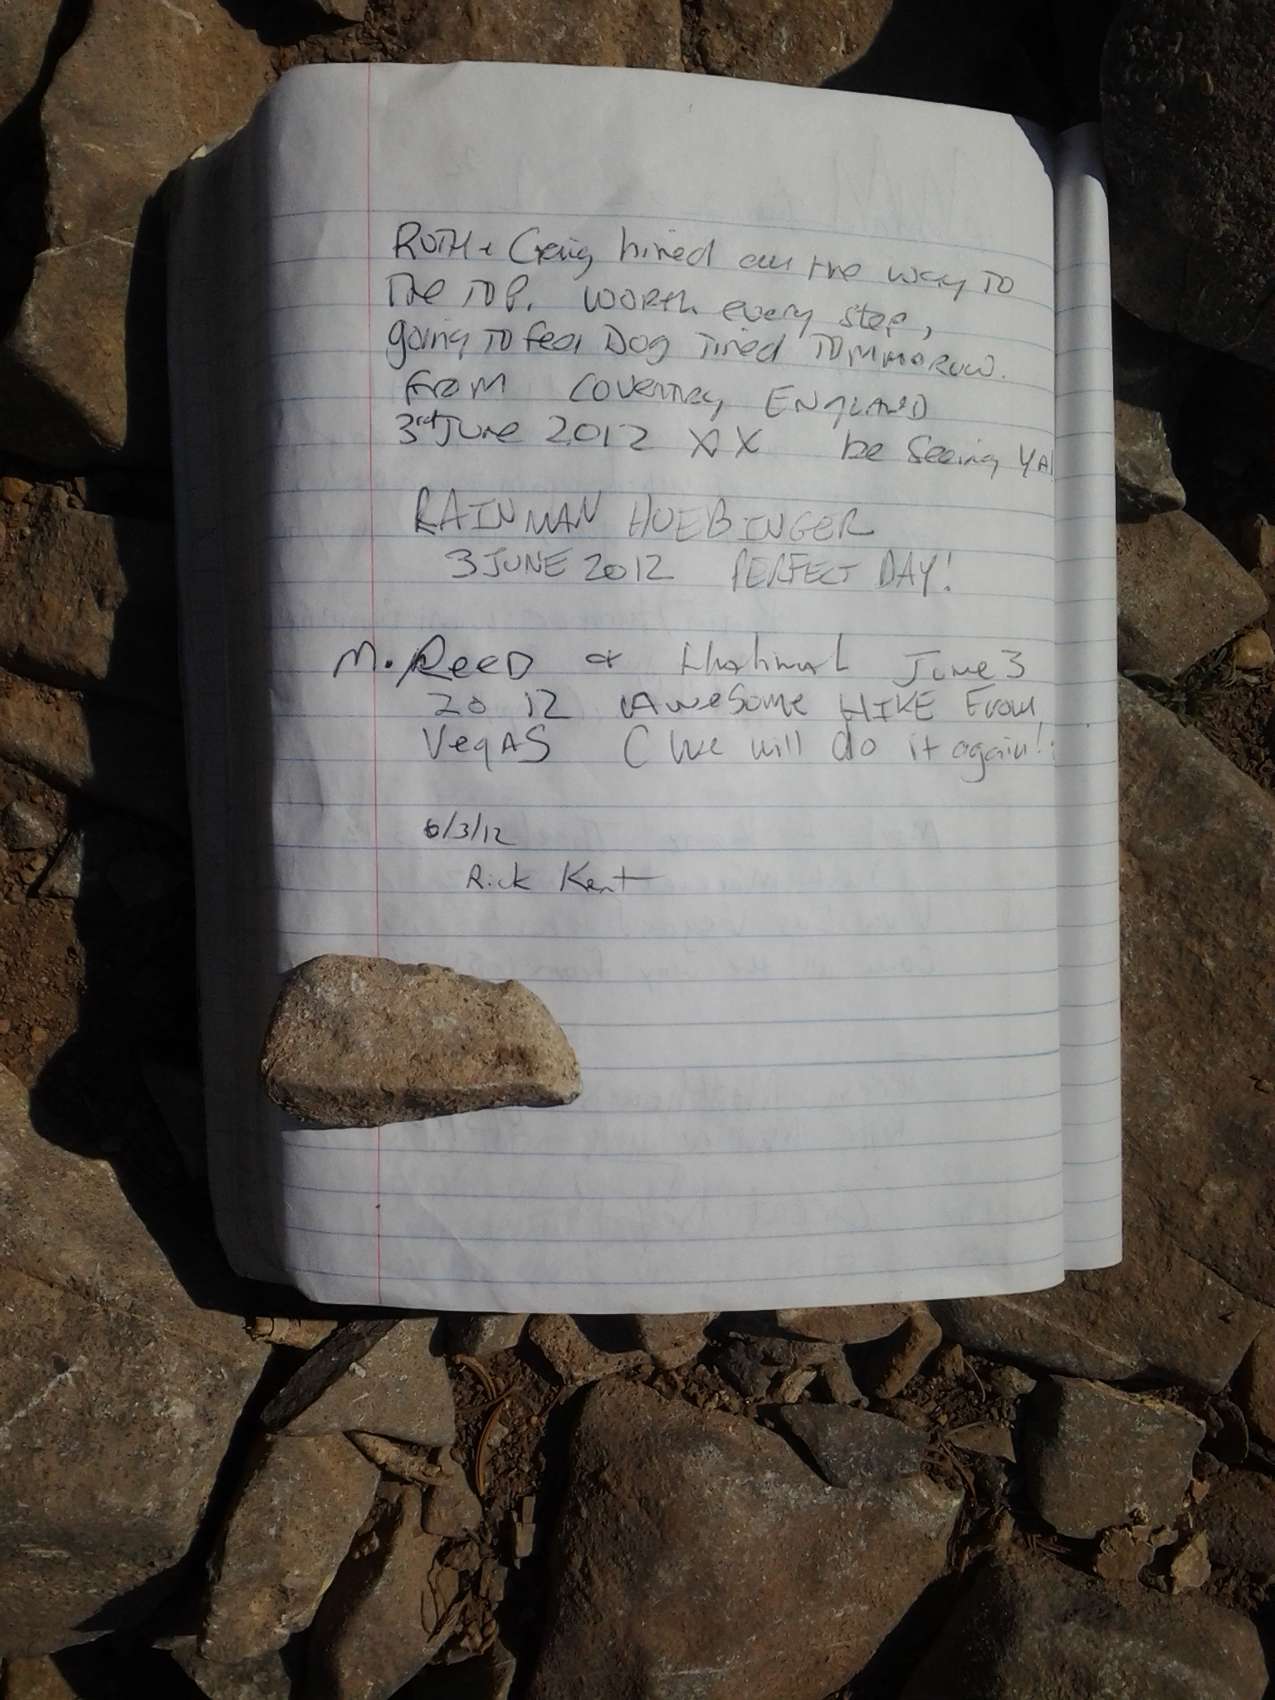 RUTH + Craig hiked all the way TO
The TOP. WORTH every step,
going TO feel Dog Tired TOMMOROW.
From COVENTRY ENGLAND
3rd June 2012 XX be seeing YA!
RAINMAN HUEBINGER
3 JUNE 2012 PERFECT DAY!
M. Reed & June 3
2012 AWeSome HIKE From
VegAS we will do it again!
6/3/12
Rick Kent